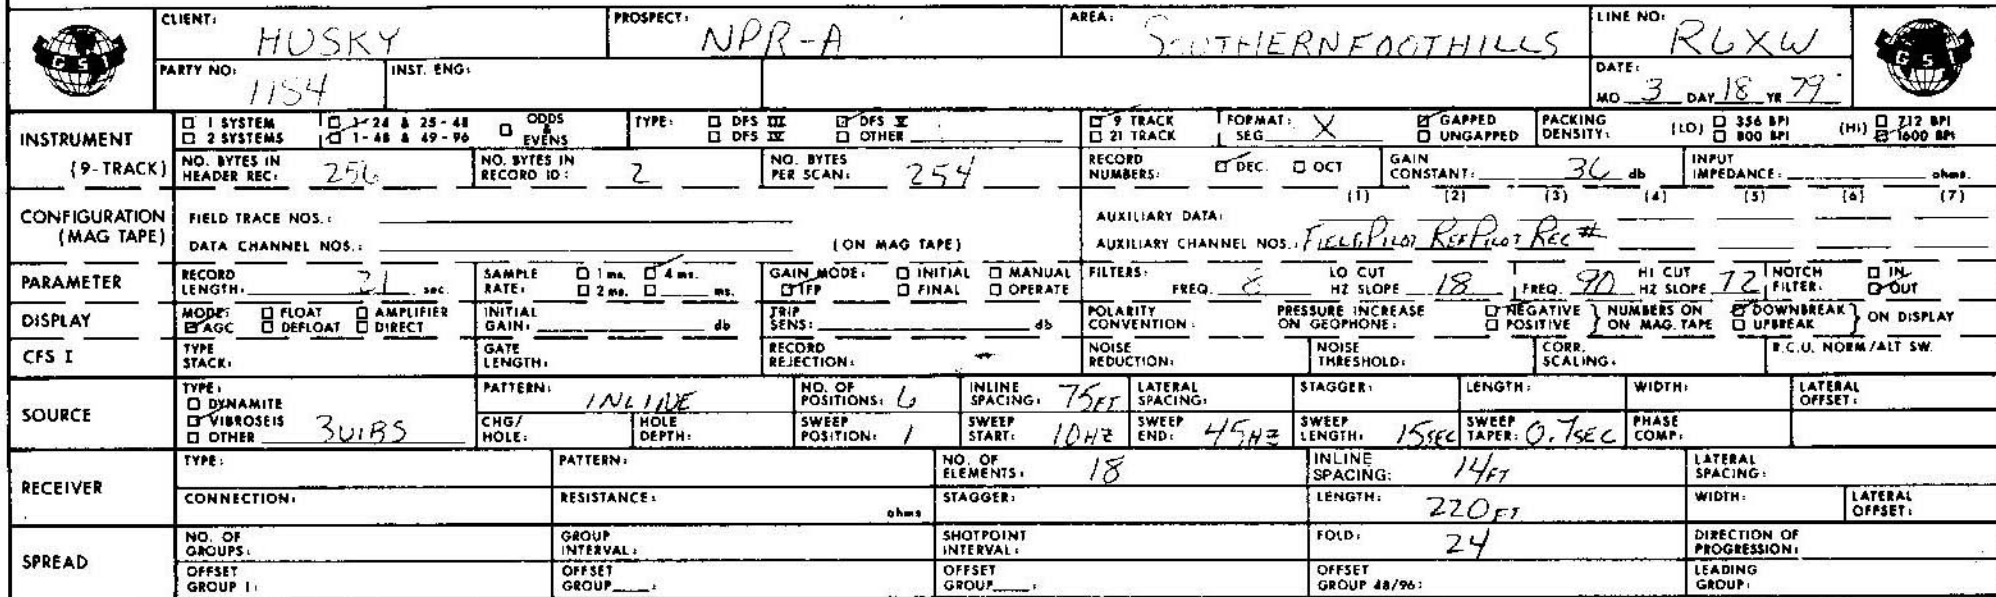 CLIENT: HUSKY PROSPECT: NPR-A AREA: SOUTHERN FOOTHILLS LINE NO: R6XW
GSI GSI
PARTY NO: 1154 INST. ENG: DATE: MO 3 DAY 18 YR 79
INSTRUMENT (9-TRACK)
☐ 1 SYSTEM ☑ 1-24 & 25-48 ☐ ODDS & EVENS TYPE: ☐ DFS III ☑ DFS V ☑ 9 TRACK FORMAT: SEG X ☑ GAPPED PACKING DENSITY: (LO) ☐ 356 BPI (HI) ☐ 712 BPI
☐ 2 SYSTEMS ☑ 1-48 & 49-96 ☐ DFS IV ☐ OTHER ☐ 21 TRACK ☐ UNGAPPED ☐ 800 BPI ☑ 1600 BPI
NO. BYTES IN HEADER REC: 256 NO. BYTES IN RECORD ID: 2 NO. BYTES PER SCAN: 254 RECORD NUMBERS: ☑ DEC. ☐ OCT GAIN CONSTANT: 36 db INPUT IMPEDANCE: ohms.
CONFIGURATION (MAG TAPE)
(1) (2) (3) (4) (5) (6) (7)
FIELD TRACE NOS.: AUXILIARY DATA:
DATA CHANNEL NOS.: (ON MAG TAPE) AUXILIARY CHANNEL NOS.: FIELD PILOT REF PILOT REC #
PARAMETER
RECORD LENGTH: 21 sec. SAMPLE RATE: ☐ 1 ms. ☑ 4 ms. ☐ 2 ms. ☐ ms. GAIN MODE: ☐ INITIAL ☐ MANUAL ☑ IFP ☐ FINAL ☐ OPERATE FILTERS: FREQ. 8 LO CUT HZ SLOPE 18 FREQ. 90 HI CUT HZ SLOPE 72 NOTCH FILTER: ☐ IN ☑ OUT
DISPLAY
MODE: ☐ FLOAT ☐ AMPLIFIER ☑ AGC ☐ DEFLOAT ☐ DIRECT INITIAL GAIN: db TRIP SENS: db POLARITY CONVENTION: PRESSURE INCREASE ON GEOPHONE: ☑ NEGATIVE ☐ POSITIVE } NUMBERS ON ON MAG. TAPE ☑ DOWNBREAK ☐ UPBREAK } ON DISPLAY
CFS I TYPE STACK: GATE LENGTH: RECORD REJECTION: NOISE REDUCTION: NOISE THRESHOLD: CORR. SCALING: R.C.U. NORM/ALT SW.
SOURCE
TYPE: ☐ DYNAMITE ☑ VIBROSEIS ☐ OTHER 3 VIBS
PATTERN: INLINE NO. OF POSITIONS: 6 INLINE SPACING: 75 FT LATERAL SPACING: STAGGER: LENGTH: WIDTH: LATERAL OFFSET:
CHG/HOLE: HOLE DEPTH: SWEEP POSITION: 1 SWEEP START: 10 HZ SWEEP END: 45 HZ SWEEP LENGTH: 15 SEC SWEEP TAPER: 0.7 SEC PHASE COMP:
RECEIVER
TYPE: PATTERN: NO. OF ELEMENTS: 18 INLINE SPACING: 14 FT LATERAL SPACING:
CONNECTION: RESISTANCE: ohms STAGGER: LENGTH: 220 FT WIDTH: LATERAL OFFSET:
SPREAD
NO. OF GROUPS: GROUP INTERVAL: SHOTPOINT INTERVAL: FOLD: 24 DIRECTION OF PROGRESSION:
OFFSET GROUP 1: OFFSET GROUP : OFFSET GROUP : OFFSET GROUP 48/96: LEADING GROUP: